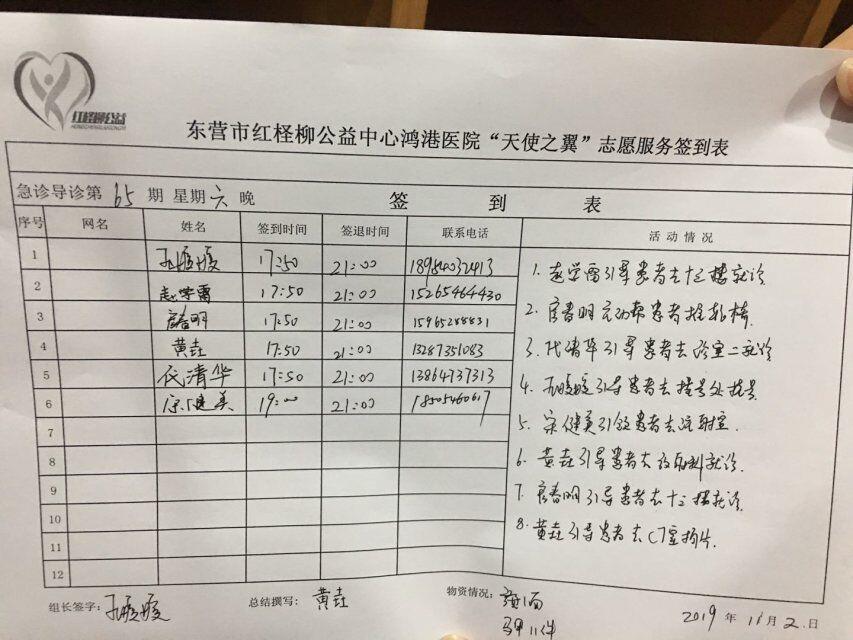 红柽柳公益
东营市红柽柳公益中心鸿港医院“天使之翼”志愿服务签到表
急诊导诊第 65 期 星期 六 晚 签 到 表
序号 网名 姓名 签到时间 签退时间 联系电话 活 动 情 况
1 孙媛媛 17:50 21:00 18954032413
2 赵学雷 17:50 21:00 15265464430
3 官春明 17:50 21:00 15965288831
4 黄垚 17:50 21:00 13287351083
5 代清华 17:50 21:00 13864737313
6 宋健美 19:00 21:00 18505460617
7
8
9
10
11
12
1. 赵学雷引导患者去十二楼就诊
2. 官春明主动帮患者推轮椅.
3. 代清华引导患者去诊室二就诊
4. 孙媛媛引导患者去挂号处挂号
5. 宋健美引领患者去注射室.
6. 黄垚引导患者去放射科就诊.
7. 官春明引导患者去十二楼就诊.
8. 黄垚引导患者去CT室拍片.
组长签字: 孙媛媛 总结撰写: 黄垚 物资情况:
2019 年 11 月 2 日